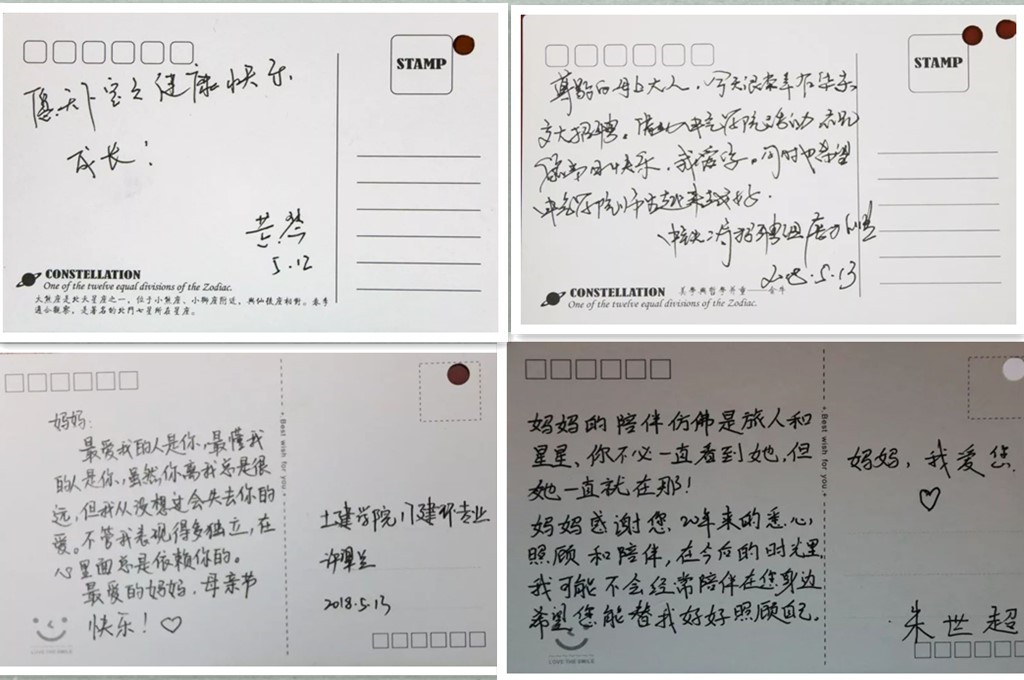 STAMP
天下宝宝健康快乐
成长!
5.12
CONSTELLATION
One of the twelve equal divisions of the Zodiac.
大熊座是北天星座之一,位于小熊座、小獅座附近,與仙後座相對。春季
適合觀察,是著名的北鬥七星所在星座。
STAMP
尊敬的母上大人,今天很荣幸在华东
交大招聘。
节日快乐,我
2018.5.13
CONSTELLATION
美學與哲學并重——金牛
One of the twelve equal divisions of the Zodiac.
妈妈:
最爱我的人是你,最懂我
的人是你,虽然,你离我总是很
远,但我从没想过会失去你的
爱。不管我表现得多独立,在
心里面总是依赖你的。
最爱的妈妈,母亲节
快乐!♡
LOVE THE SMILE
Best wish for you
土建学院,建环专业
许翠兰
2018.5.13
妈妈的陪伴仿佛是旅人和
星星、你不必一直看到她,但
她一直就在那!
妈妈感谢您 20年来的悉心
照顾 和陪伴,在今后的时光里
我可能不会经常陪伴在您身边
希望您能替我好好照顾自己.
LOVE THE SMILE
Best wish for you
妈妈,我爱您.
♡
朱世超